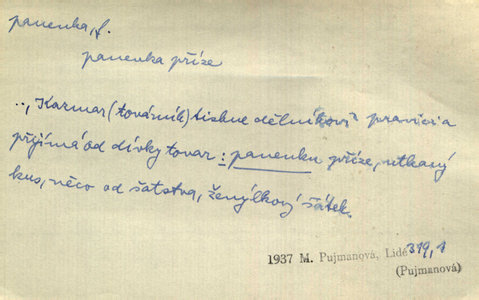 panenka, f.
panenka příze
.., Kazmar (továrník) tiskne dělníkovi pravici a
přijímá od dívky tovar: panenku příze, utkaný
kus, něco od šatstva, ženýlkový šátek.
1937 M. Pujmanová, Lidé 319,1
(Pujmanová)